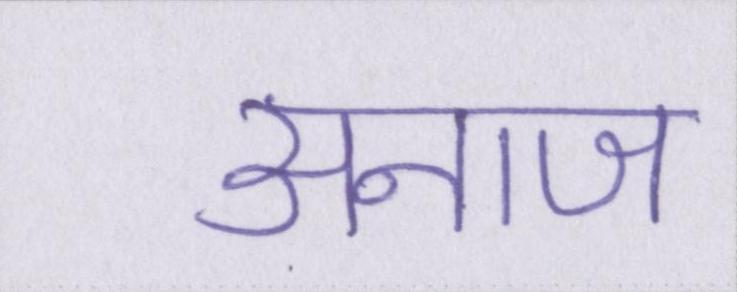 अनाज